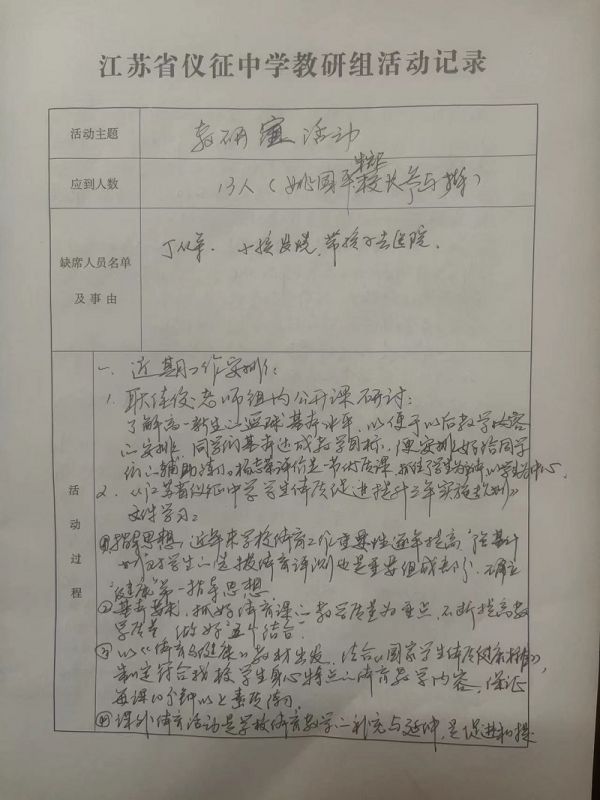 江苏省仪征中学教研组活动记录
活动主题 教研组活动
应到人数 13人（姚国平校长参与指导）
缺席人员名单
及事由
丁从军. 带孩子去医院.
活动过程
一、近期工作安排：
1. 老师组内公开课研讨：
了解高一新生的篮球基本水平，以便于以后教学内容
的安排，同学们基本达成教学目标，
的辅助练习。评价是一节优质课，以学生为中心.
2. 《江苏省仪征中学学生体质促进提升三年实施规划》
文件学习：
①指导思想，近年来学校体育工作重要性逐年提高"强基计
对学生的体育评测也是重要组成部分，确立
"健康"第一指导思想.
②基本原则，抓好体育课的教学质量为重点，不断提高教
学质量 做好"五个结合"
③以《体育与健康》教材出发，结合《国家学生体质健康标准》，
制定符合我校学生身心特点的体育教学内容，保证
每课10分钟以上素质练习.
④课外体育活动是学校体育教学的补充与延伸，是促进和提